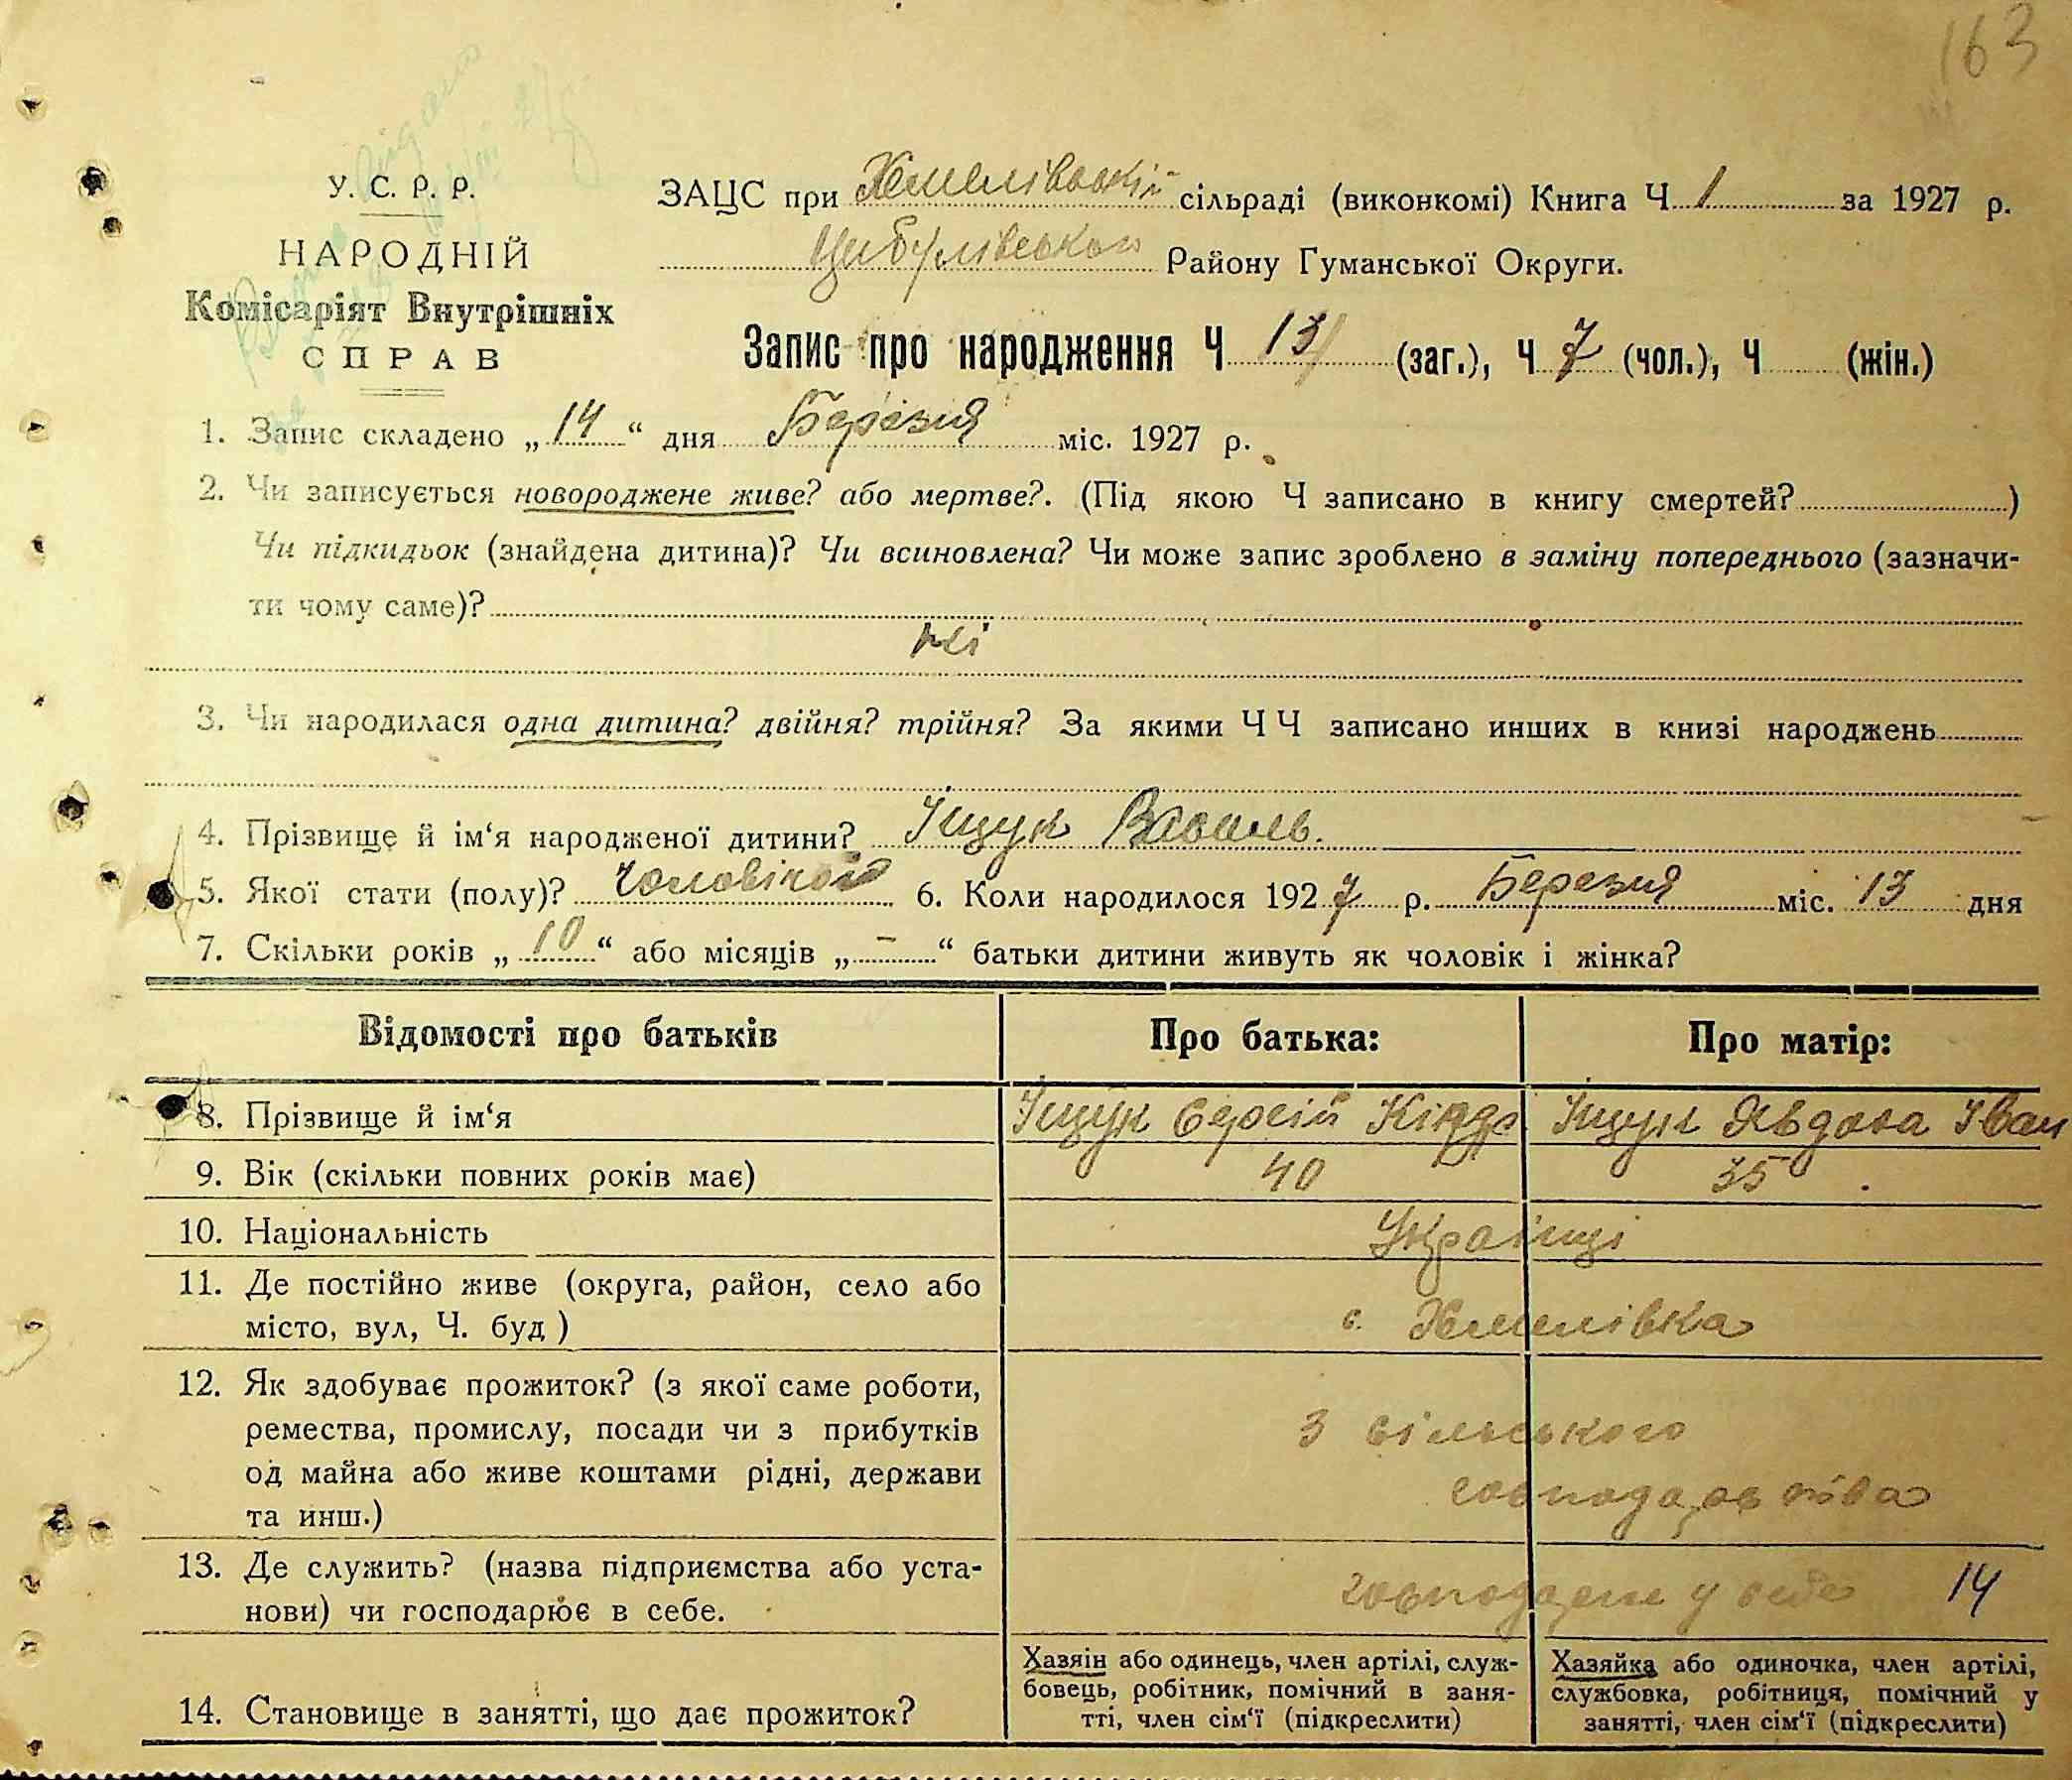 163
У. С. Р. Р.
НАРОДНІЙ
Комісаріят Внутрішніх
СПРАВ
ЗАЦС при Хмелівській сільраді (виконкомі) Книга Ч 1 за 1927 р.
Цибулівського Району Гуманської Округи.
Запис про народження Ч 13 (заг.), Ч 7 (чол.), Ч (жін.)
1. Запис складено „14“ дня Березня міс. 1927 р.
2. Чи записується новороджене живе? або мертве?. (Під якою Ч записано в книгу смертей?)
Чи підкидьок (знайдена дитина)? Чи всиновлена? Чи може запис зроблено в заміну попереднього (зазначи-
ти чому саме)?
ні
3. Чи народилася одна дитина? двійня? трійня? За якими Ч Ч записано инших в книзі народжень
4. Прізвище й ім‘я народженої дитини? Іщук Василь.
5. Якої стати (полу)? Чоловічої 6. Коли народилося 1927 р. Березня міс. 13 дня
7. Скільки років „10“ або місяців „–“ батьки дитини живуть як чоловік і жінка?
Відомості про батьків Про батька: Про матір:
8. Прізвище й ім‘я Іщук Сергій Іщук Явдоха Іван
9. Вік (скільки повних років має) 40 35
10. Національність Українці
11. Де постійно живе (округа, район, село або
місто, вул, Ч. буд ) с. Хмелівка
12. Як здобуває прожиток? (з якої саме роботи,
ремества, промислу, посади чи з прибутків
од майна або живе коштами рідні, держави
та инш.)
З сільського
господарства
13. Де служить? (назва підприємства або уста-
нови) чи господарює в себе.
господарює у себе 14
14. Становище в занятті, що дає прожиток?
Хазяін або одинець, член артілі, служ-
бовець, робітник, помічний в заня-
тті, член сім‘ї (підкреслити)
Хазяйка або одиночка, член артілі,
службовка, робітниця, помічний у
занятті, член сім‘ї (підкреслити)